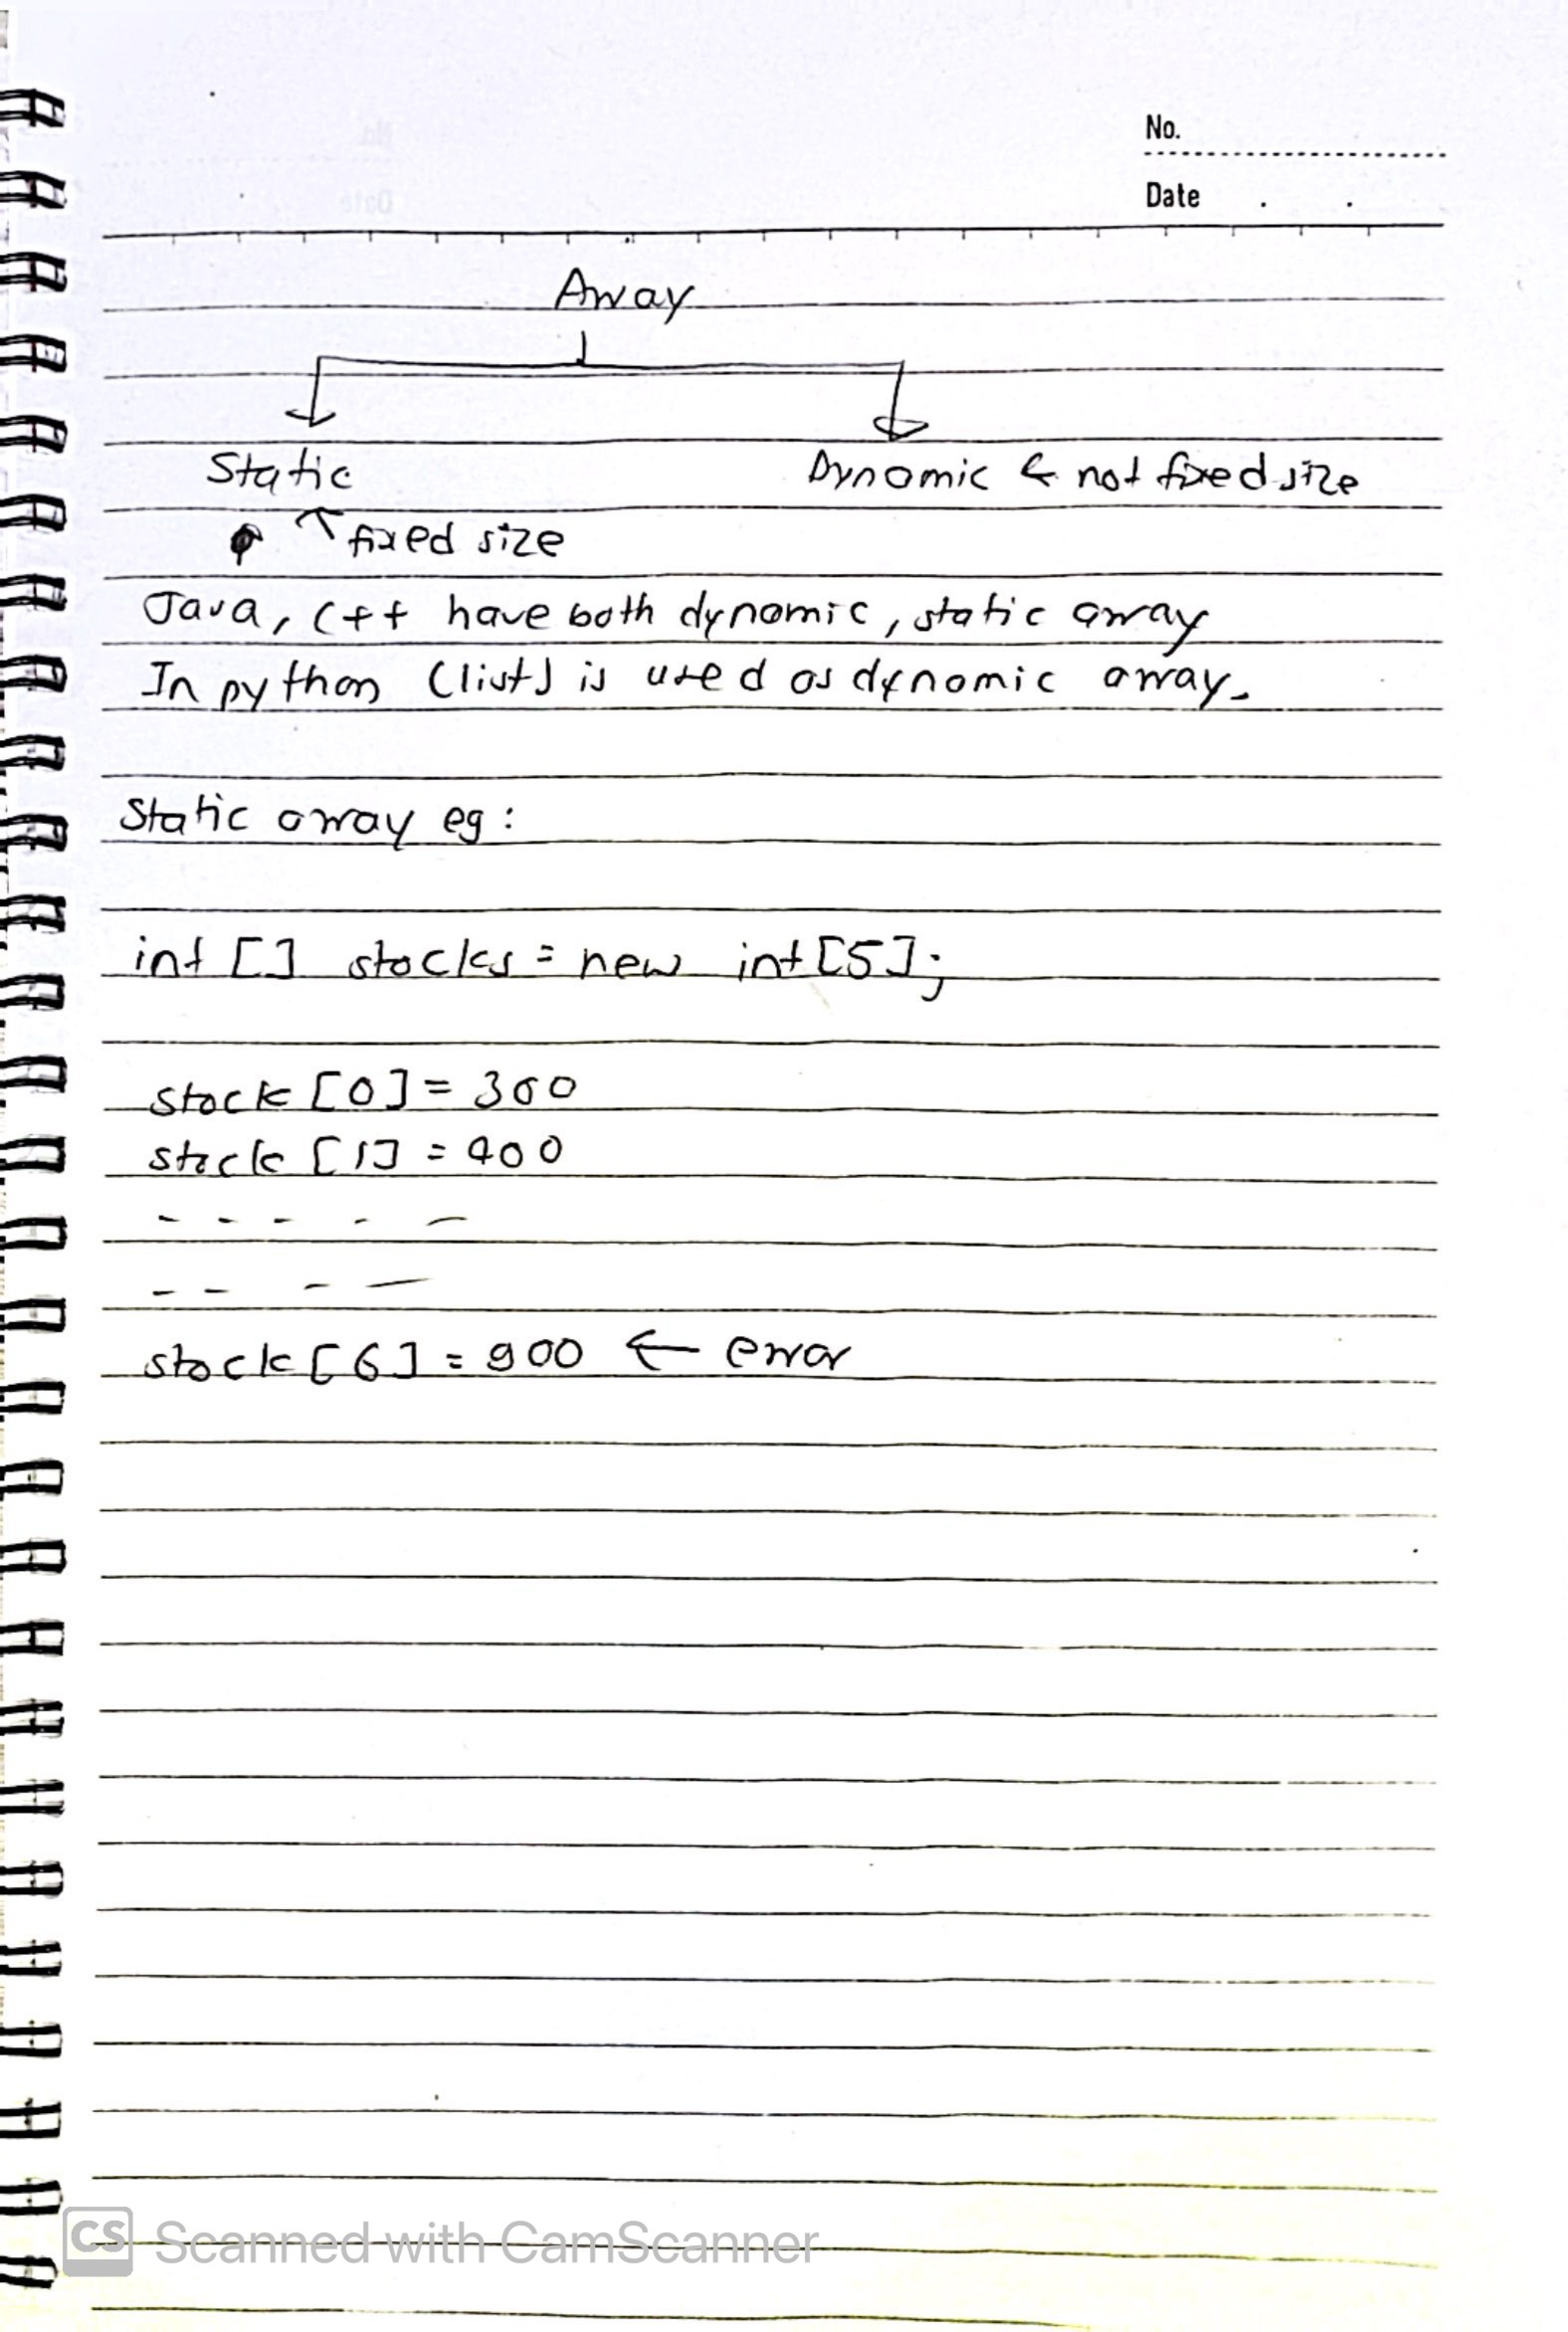 No.
Date . .
Array
Static
Dynamic ← not fixed size
↖ fixed size
Java, C++ have both dynamic, static array
In python (list) is used as dynamic array.
Static array eg :
int [] stocks = new int[5];
stock [0] = 300
stock [1] = 400
- - - - -
- - - -
stock [6] = 900 ← error
CS Scanned with CamScanner